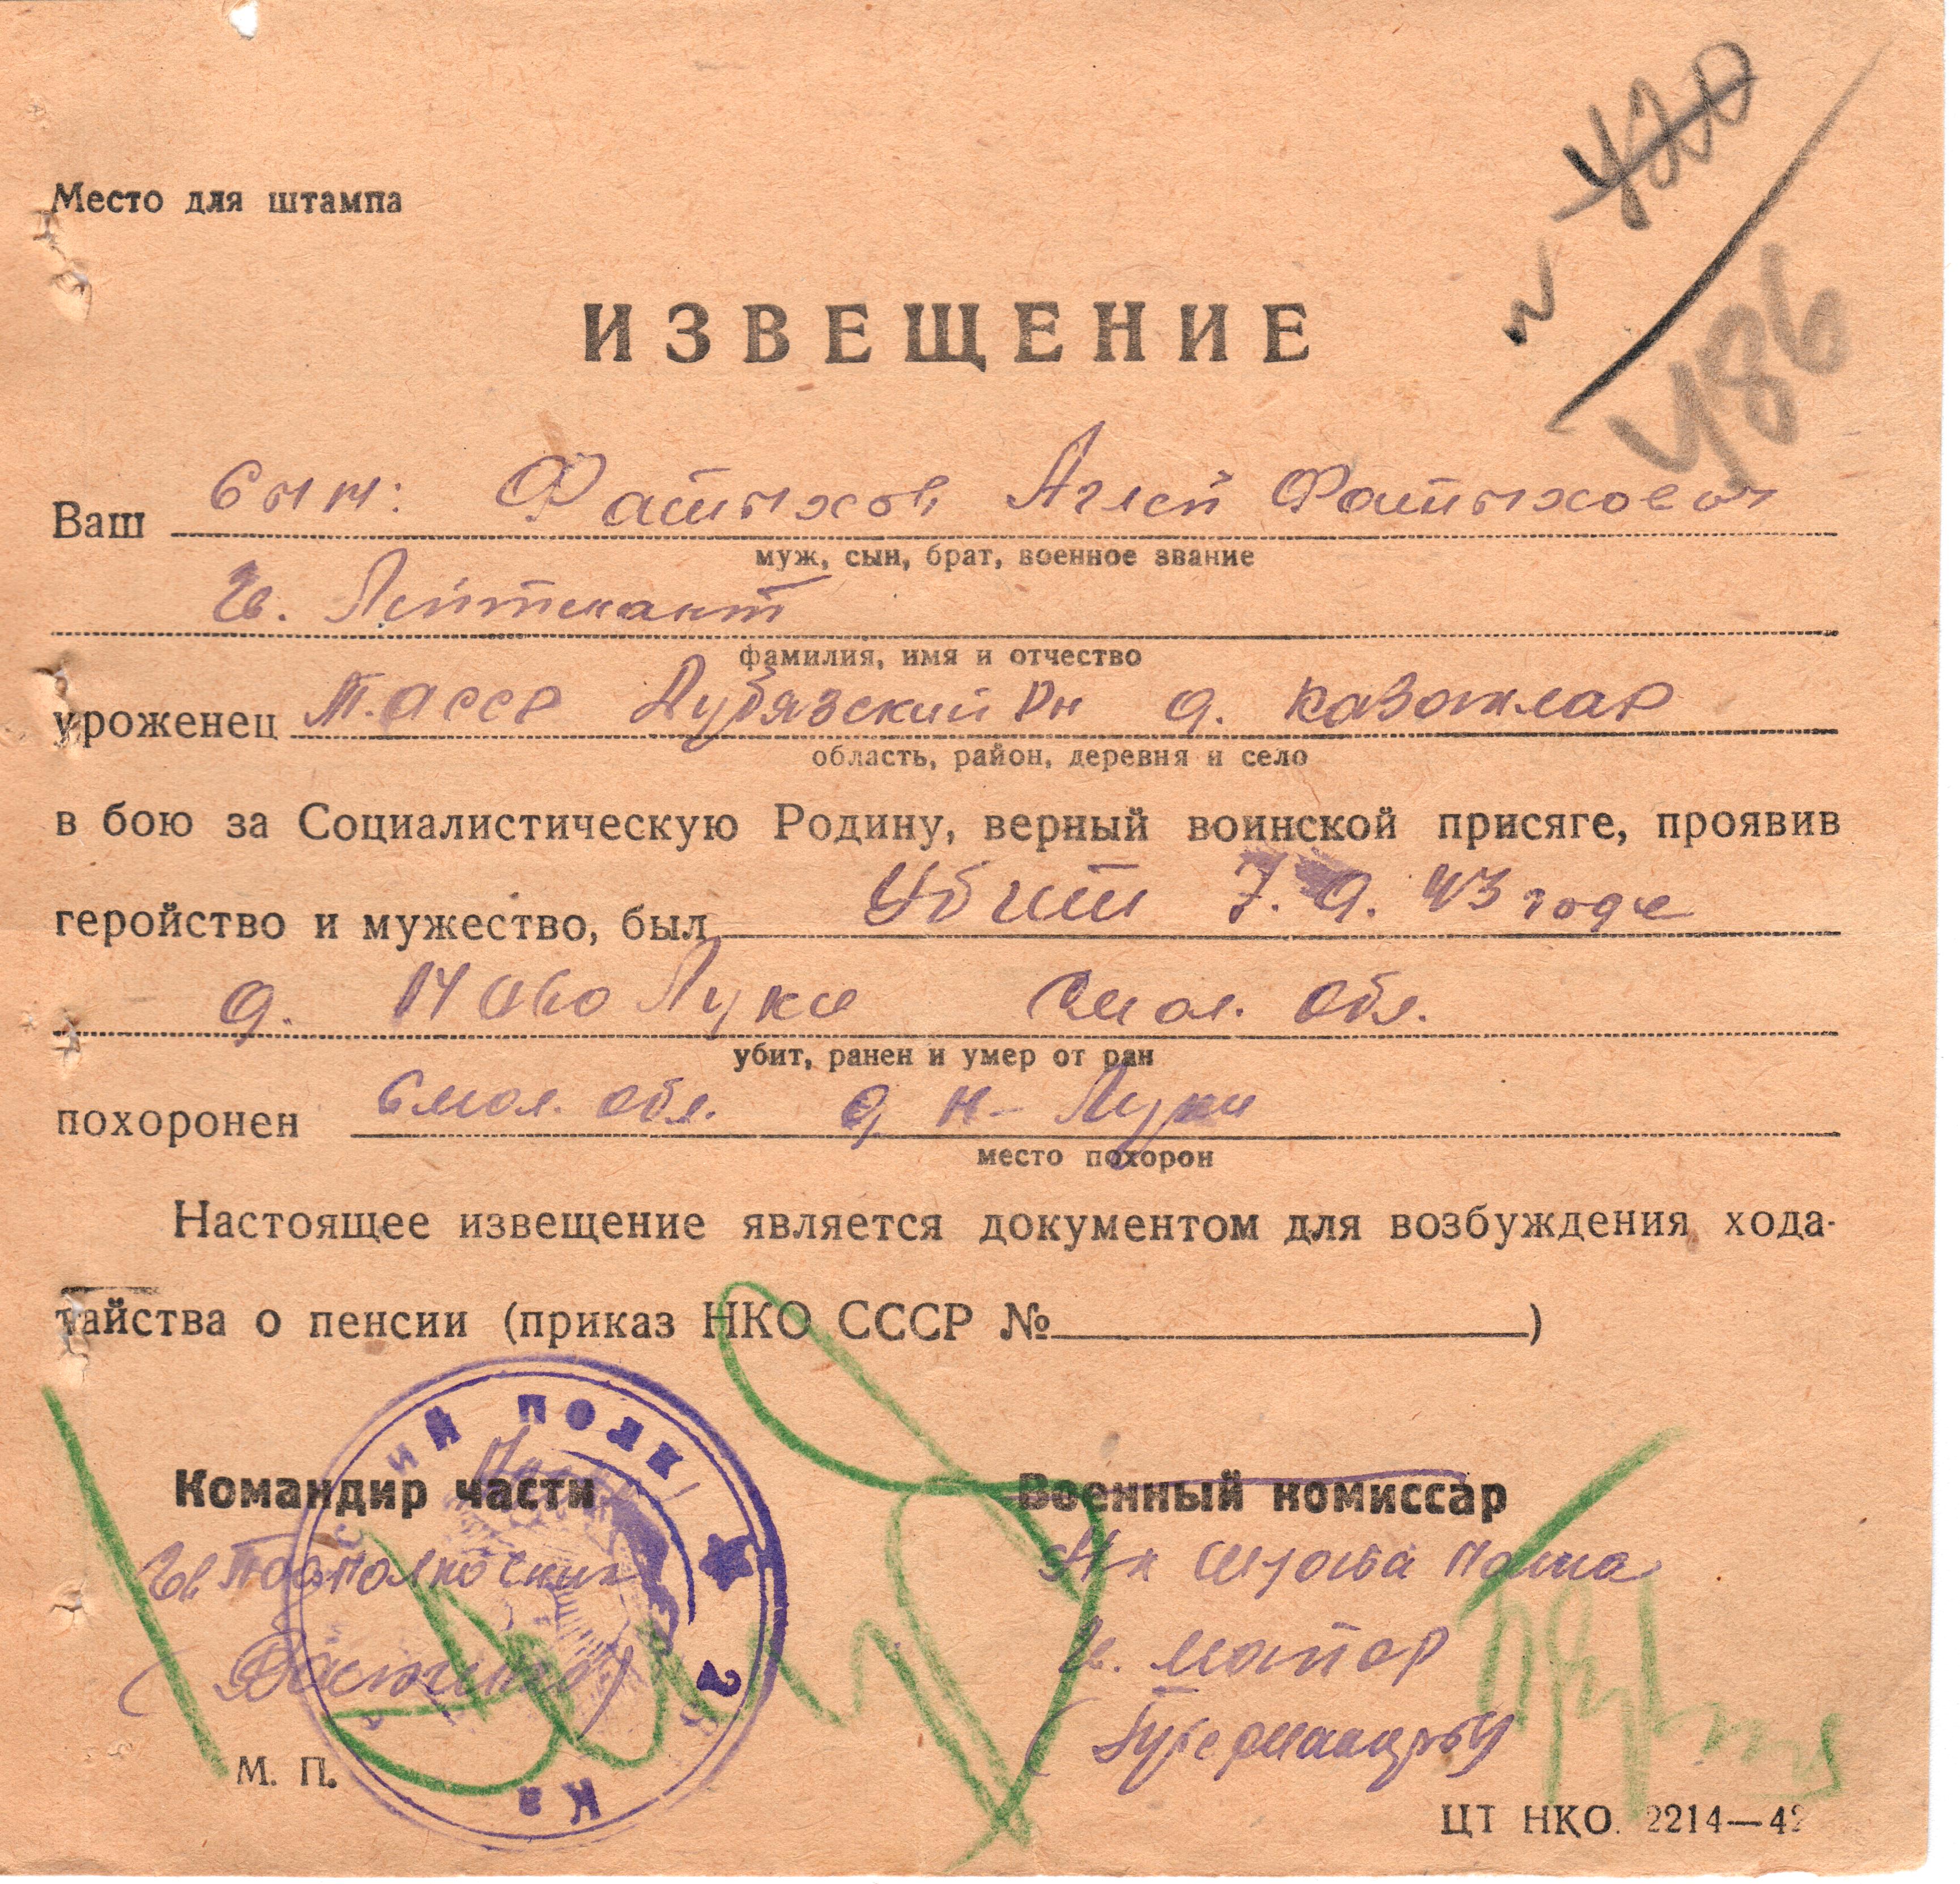 420
N
486
Место для штампа
ИЗВЕЩЕНИЕ
Ваш сын: Фатыхов Аглей Фатыхович
муж, сын, брат, военное звание
Гв. Лейтенант
фамилия, имя и отчество
уроженец Т.АССР Дубязский Рн д.
область, район, деревня и село
в бою за Социалистическую Родину, верный воинской присяге, проявив
геройство и мужество, был Убит 7. 9. 43 годе
д. Ново Луки Смол. Обл.
убит, ранен и умер от ран
похоронен Смол. Обл. д Н- Луки
место похорон
Настоящее извещение является документом для возбуждения хода-
тайства о пенсии (приказ НКО СССР № )
ий полк
Командир части Военный комиссар
Гв Подполковник Нк Штаба Полка
майор
М. П.
ЦТ НКО. 2214—42